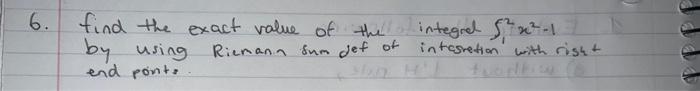 6. find the exact value of the integral ∫₁² x²-1
by using Riemann Sum def of integretion with right
end ponts.